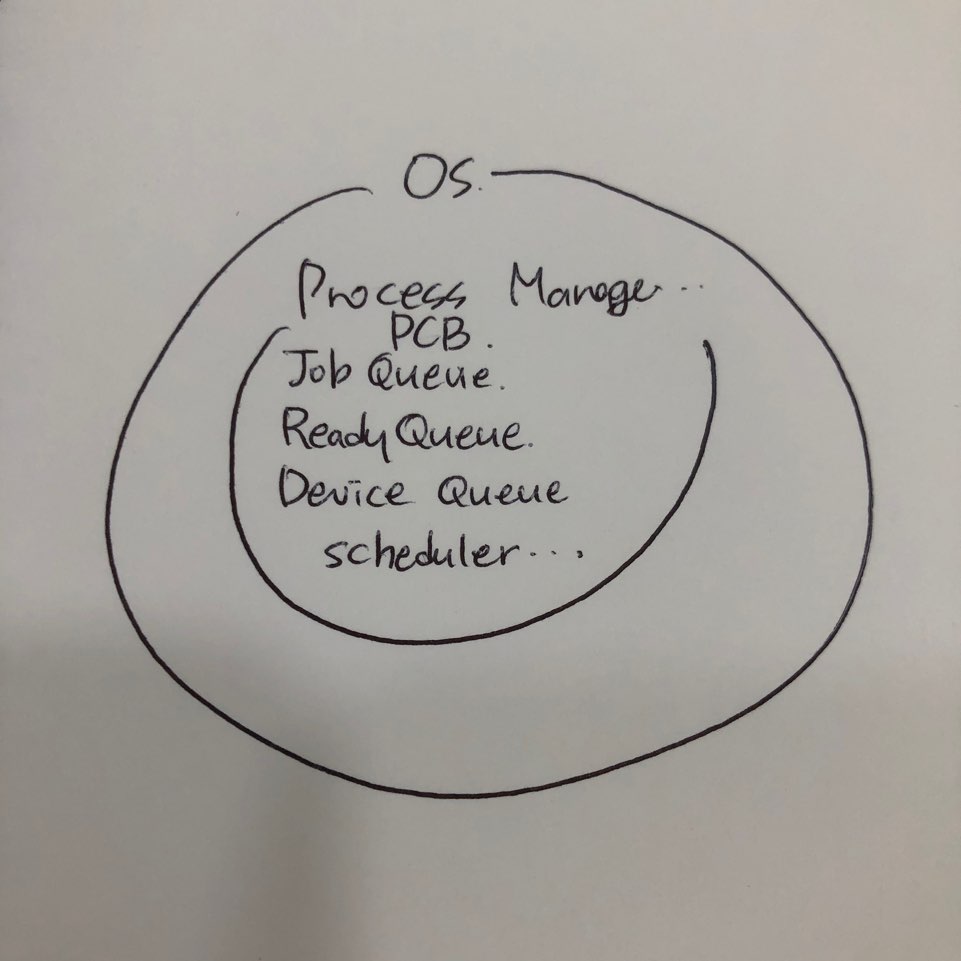 OS.
Process Manage...
PCB.
Job Queue.
Ready Queue.
Device Queue
scheduler...